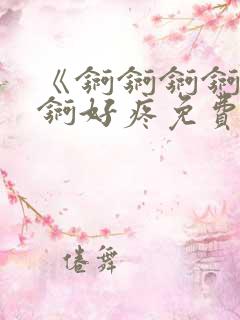 《锕锕锕锕
锕好疼免費
倦舞